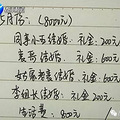 5月16: (8000元)
同事小王结婚: 礼金:200元
表哥结婚: 礼金:600元
姑奶家表妹结婚: 礼金:600元
李组长结婚 礼金:200元
生活费: 800元